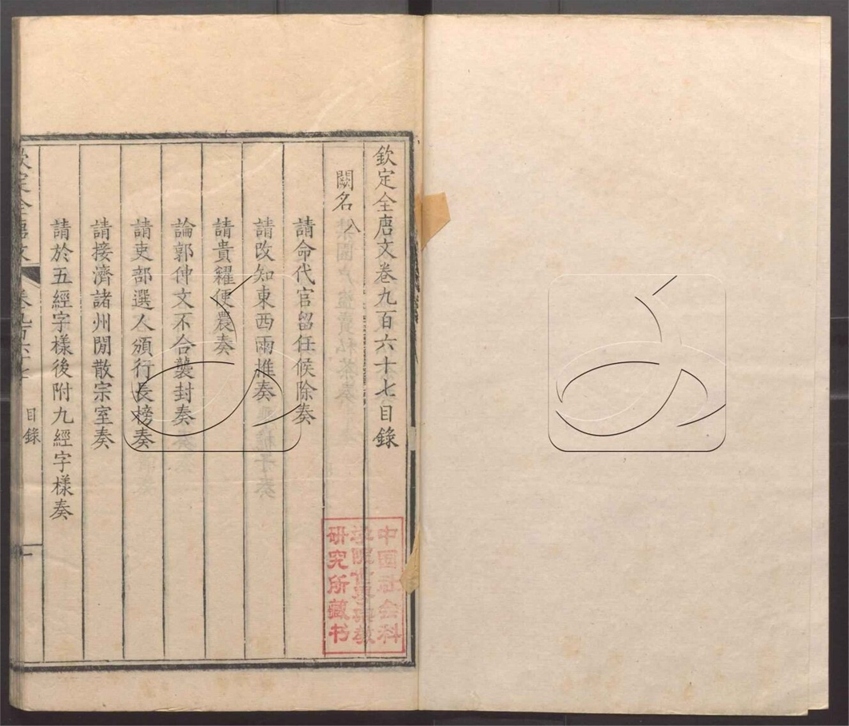 欽定全唐文卷九百六十七目錄
闕名八
請命代官留任候除奏
請改知東西兩推奏
請貴糴便農奏
論郭仲文不合襲封奏
請吏部選人頒行長榜奏
請接濟諸州閒散宗室奏
請於五經字樣後附九經字樣奏
欽定全唐文 卷九百六十七 目錄 一
中国社会科
学院世界宗教
研究所藏书